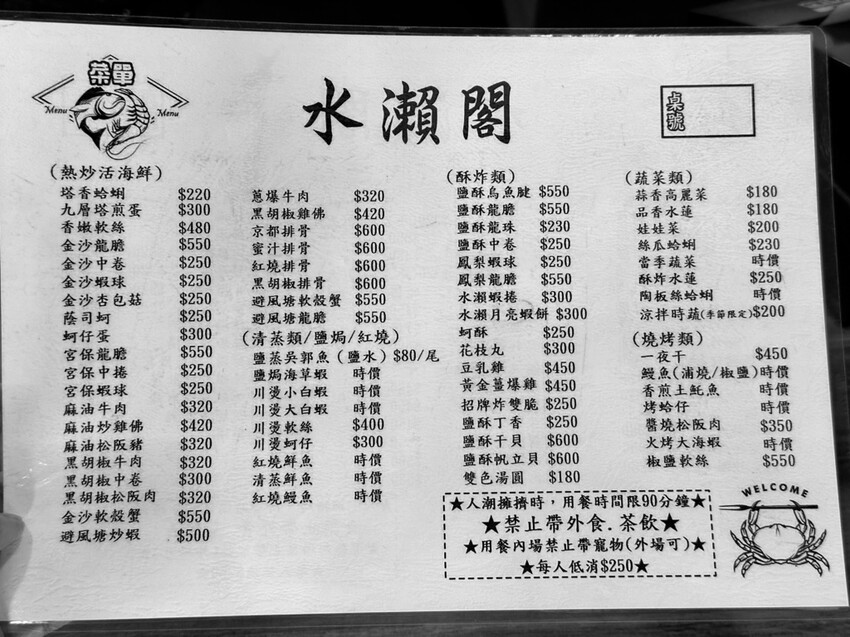 菜單
Menu Menu
水瀨閣
桌號
(熱炒活海鮮)
塔香蛤蜊 $220
九層塔煎蛋 $300
香嫩軟絲 $480
金沙龍膽 $550
金沙中卷 $250
金沙蝦球 $250
金沙杏包菇 $250
蔭司蚵 $250
蚵仔蛋 $300
宮保龍膽 $550
宮保中捲 $250
宮保蝦球 $250
麻油牛肉 $320
麻油炒雞佛 $420
麻油松阪豬 $320
黑胡椒牛肉 $320
黑胡椒中卷 $300
黑胡椒松阪肉 $320
金沙軟殼蟹 $550
避風塘炒蝦 $500
蔥爆牛肉 $320
黑胡椒雞佛 $420
京都排骨 $600
蜜汁排骨 $600
紅燒排骨 $600
黑胡椒排骨 $600
避風塘軟殼蟹 $550
避風塘龍膽 $550
(清蒸類/鹽焗/紅燒)
鹽蒸吳郭魚(鹽水) $80/尾
鹽焗海草蝦 時價
川燙小白蝦 時價
川燙大白蝦 時價
川燙軟絲 $400
川燙蚵仔 $300
紅燒鮮魚 時價
清蒸鮮魚 時價
紅燒鰻魚 時價
(酥炸類)
鹽酥烏魚腱 $550
鹽酥龍膽 $550
鹽酥龍珠 $230
鹽酥中卷 $250
鳳梨蝦球 $250
鳳梨龍膽 $550
水瀨蝦捲 $300
水瀨月亮蝦餅 $300
蚵酥 $250
花枝丸 $300
豆乳雞 $450
黃金薑爆雞 $450
招牌炸雙脆 $250
鹽酥丁香 $250
鹽酥干貝 $600
鹽酥帆立貝 $600
雙色湯圓 $180
(蔬菜類)
蒜香高麗菜 $180
品香水蓮 $180
娃娃菜 $200
絲瓜蛤蜊 $230
當季蔬菜 時價
酥炸水蓮 $250
陶板絲蛤蜊 時價
涼拌時蔬(季節限定) $200
(燒烤類)
一夜干 $450
鰻魚(蒲燒/椒鹽) 時價
香煎土魠魚 時價
烤蛤仔 時價
醬燒松阪肉 $350
火烤大海蝦 時價
椒鹽軟絲 $550
★人潮擁擠時，用餐時間限90分鐘★
★禁止帶外食.茶飲★
★用餐內場禁止帶寵物(外場可)★
★每人低消$250★
WELCOME